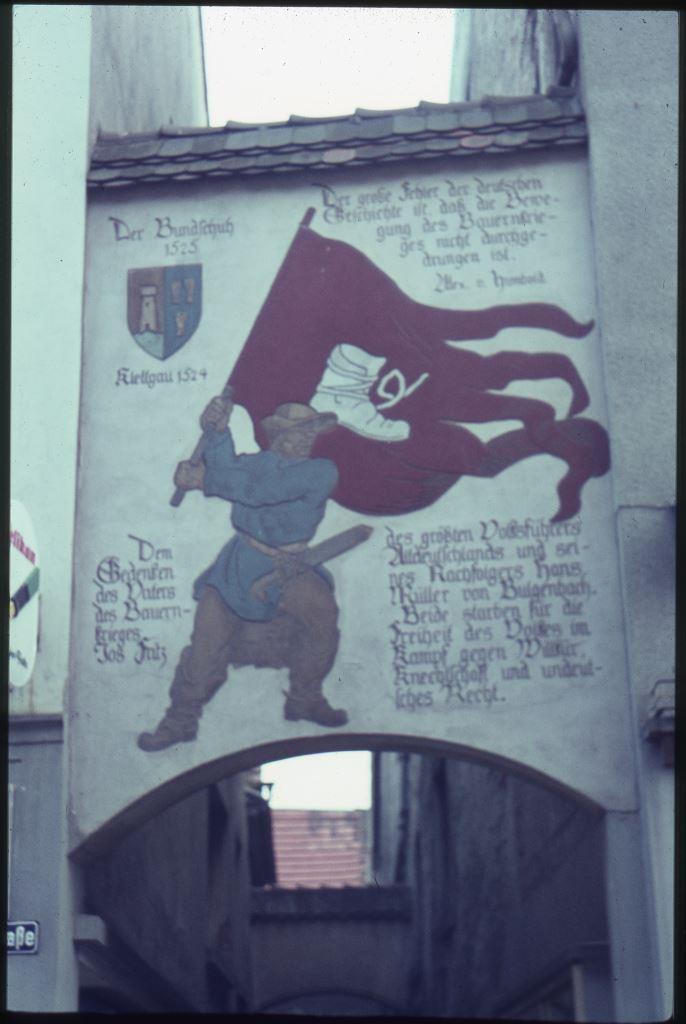 Der Bundschuh
1525
Klettgau 1524
Der große Fehler der deutschen
Geschichte ist, daß die Bewe-
gung des Bauernkrie-
ges nicht durchge-
drungen ist.
Alex. v. Humboldt
Dem
Gedenken
des Vaters
des Bauern-
krieges
Jos Fritz
des größten Volksführers
Altdeutschlands und sei-
nes Nachfolgers Hans
Müller von Bulgenbach.
Beide starben für die
Freiheit des Volkes im
Kampf gegen Willkür,
Knechtschaft und undeut-
sches Recht.
elikan
aße